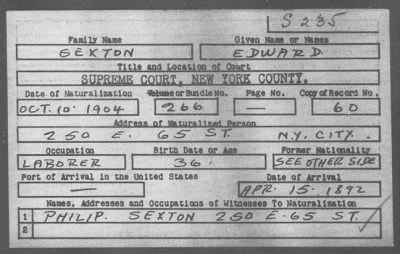 S 235
Family Name Given Name or Names
SEXTON EDWARD.
Title and Location of Court
SUPREME COURT, NEW YORK COUNTY.
Date of Naturalization Volume or Bundle No. Page No. Copy of Record No.
OCT. 10. 1904 266 — 60
Address of Naturalized Person
250 E. 65 ST. N.Y. CITY.
Occupation Birth Date or Age Former Nationality
LABORER 36. SEE OTHER SIDE
Port of Arrival in the United States Date of Arrival
— APR. 15. 1892
Names, Addresses and Occupations of Witnesses To Naturalization
1 PHILIP. SEXTON 250 E. 65 ST.
2